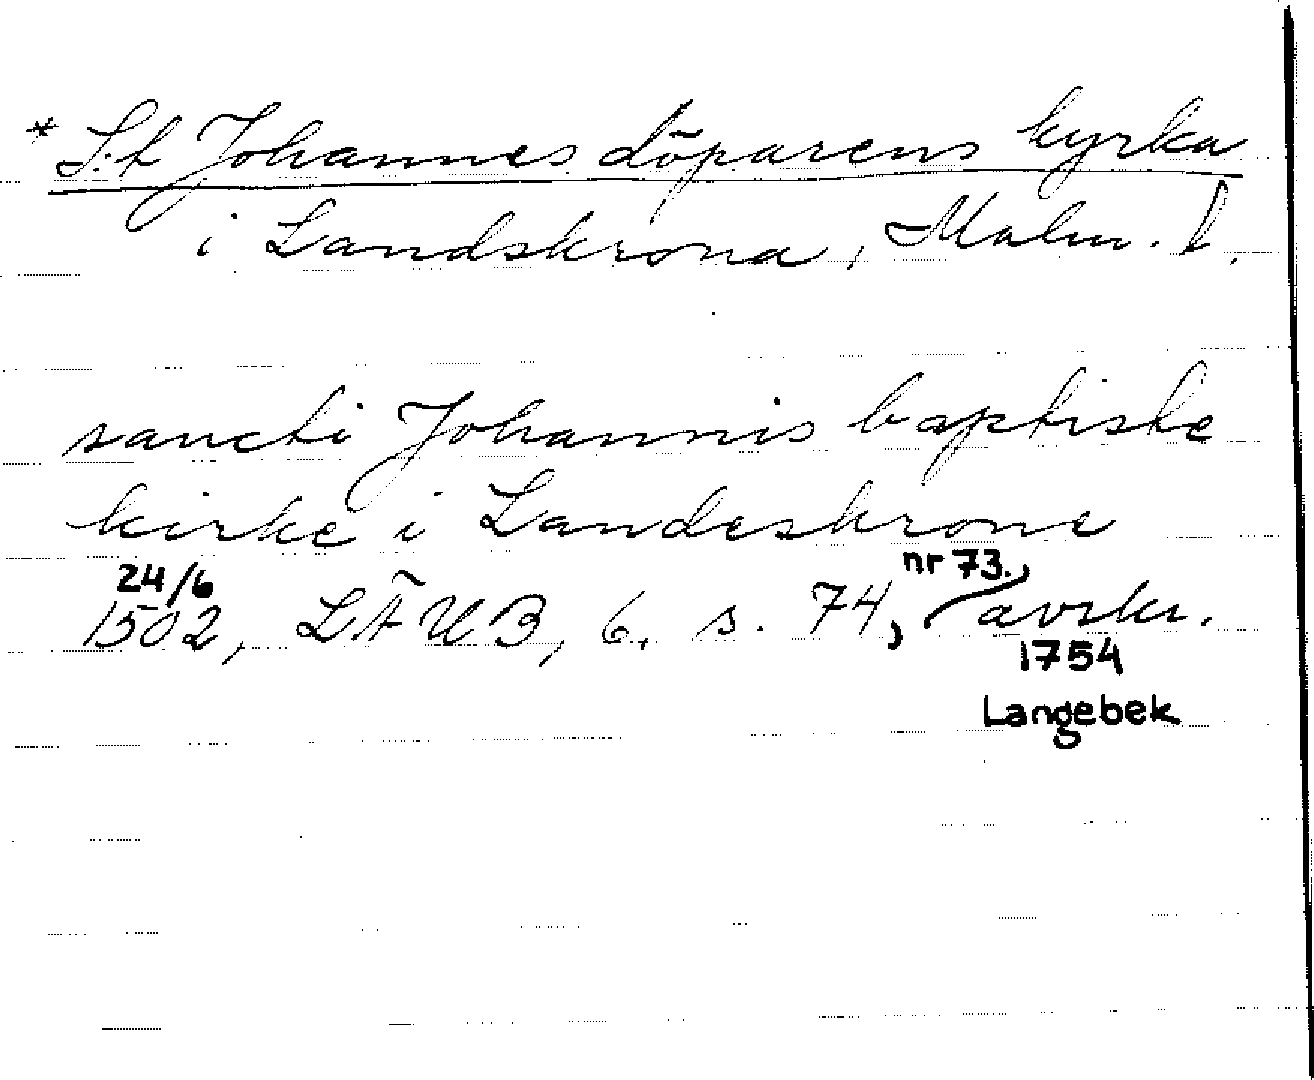 * S:t Johannes döparens kyrka
i Landskrona, Malm. l.
sancti Johannis baptiste
kirke i Landeskrone
24/6 nr 73.,
1502, LÄUB, 6, s. 74, avskr.
1754
Langebek